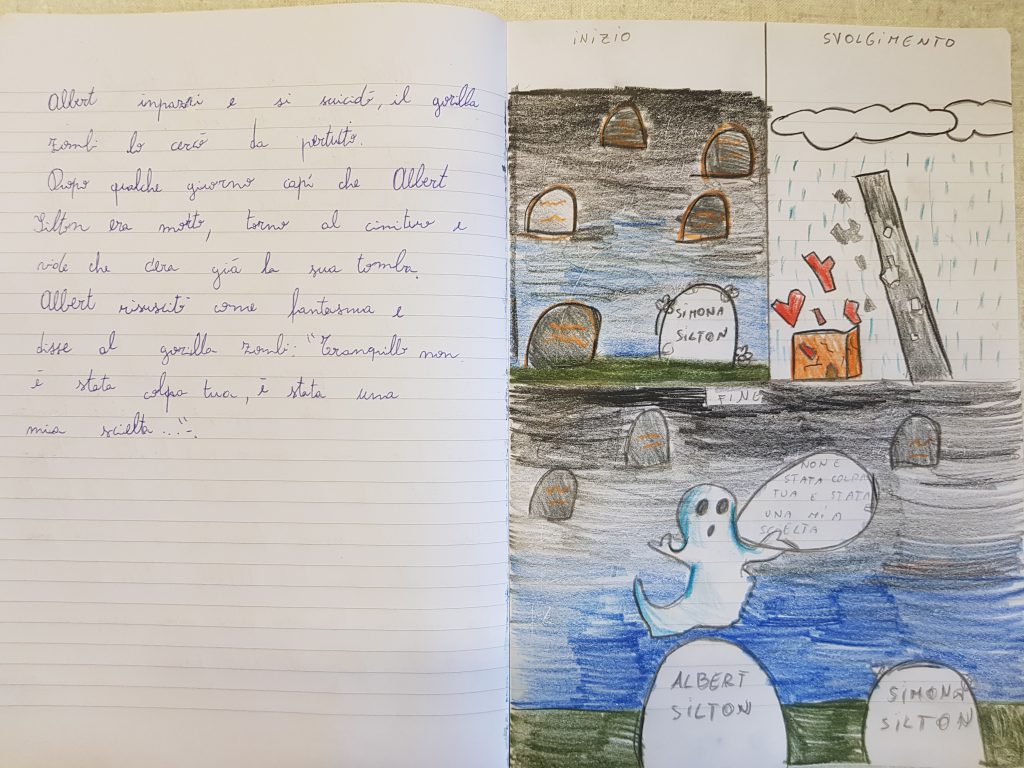 Albert inpazzì e si suicidò, il gorilla
zombi lo cercò da pertutto.
Dopo qualche giorno capì che Albert
Silton era morto, tornò al cimitero e
vide che c'era già la sua tomba.
Albert risuscitò come fantasma e
disse al gorilla zombi: "Tranquillo non
è stata colpa tua, è stata una
mia scielta..."
INIZIO
SVOLGIMENTO
SIMONA
SILTON
FINE
NON È
STATA COLPA
TUA È STATA
UNA MIA
SCIELTA
ALBERT
SILTON
SIMONA
SILTON